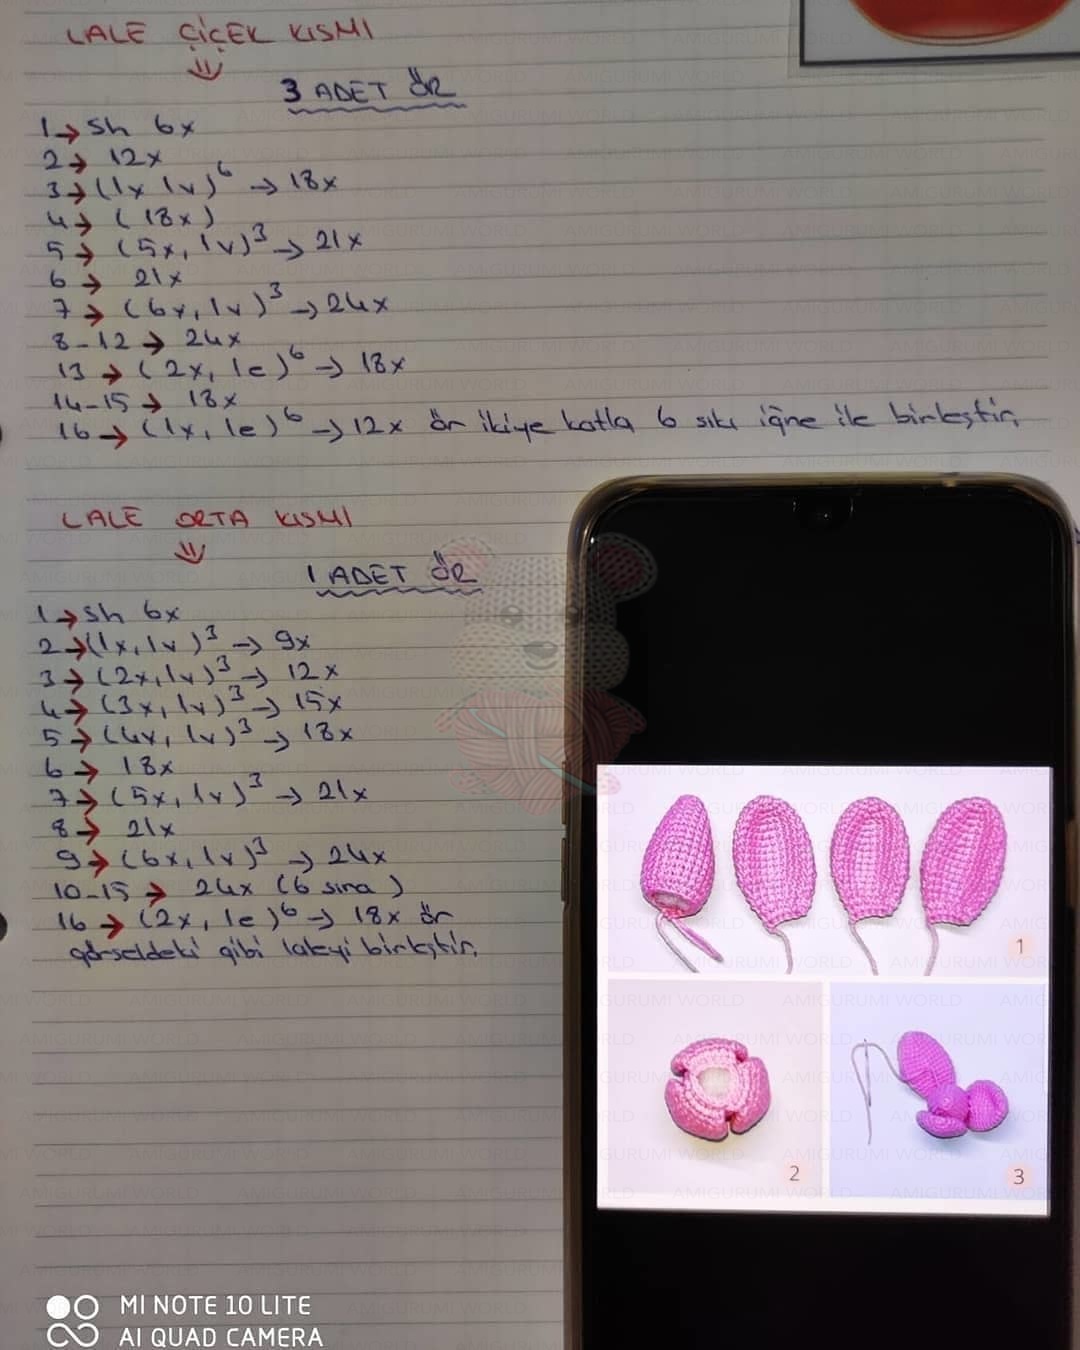 LALE ÇİÇEK KISMI
3 ADET ÖR
1→ sh 6x
2→ 12x
3→ (1x 1v)⁶ → 18x
4→ (18x)
5→ (5x, 1v)³ → 21x
6→ 21x
7→ (6x, 1v)³ → 24x
8-12→ 24x
13→ (2x, 1e)⁶ → 18x
14-15→ 18x
16→ (1x, 1e)⁶ → 12x ör ikiye katla 6 sık iğne ile birleştir.
LALE ORTA KISMI
1 ADET ÖR
1→ sh 6x
2→ (1x, 1v)³ → 9x
3→ (2x, 1v)³ → 12x
4→ (3x, 1v)³ → 15x
5→ (4x, 1v)³ → 18x
6→ 18x
7→ (5x, 1v)³ → 21x
8→ 21x
9→ (6x, 1v)³ → 24x
10-15→ 24x (6 sıra)
16→ (2x, 1e)⁶ → 18x ör
görseldeki gibi laleyi birleştir.
1
2
3
AMIGURUMI WORLD
MI NOTE 10 LITE
AI QUAD CAMERA